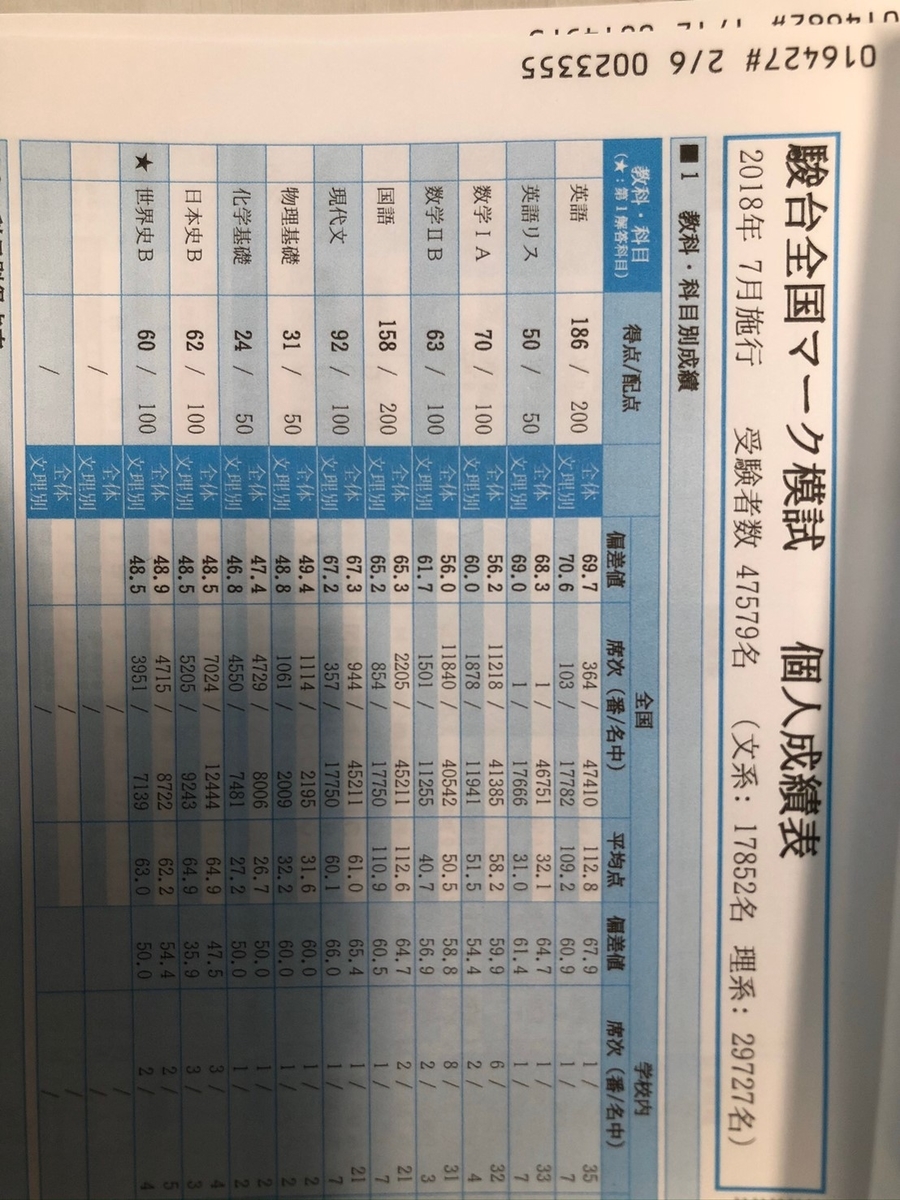 016427# 2/6 0023355
駿台全国マーク模試 個人成績表
2018年 7月施行 受験者数 47579名 (文系: 17852名 理系: 29727名)
■1 教科・科目別成績
教科・科目 (★:第1解答科目) 得点/配点 全国 学校内
偏差値 席次(番/名中) 平均点 偏差値 席次(番/名中)
英語 186 / 200 全体 69.7 364 / 47410 112.8 67.9 1 / 35
文理別 70.6 103 / 17782 109.2 60.9 1 / 7
英語リス 50 / 50 全体 68.3 1 / 46751 32.1 64.7 1 / 33
文理別 69.0 1 / 17666 31.0 61.4 1 / 7
数学ⅠA 70 / 100 全体 56.2 11218 / 41385 58.2 59.9 6 / 32
文理別 60.0 1878 / 11941 51.5 54.4 2 / 4
数学ⅡB 63 / 100 全体 56.0 11840 / 40542 50.5 58.8 8 / 31
文理別 61.7 1501 / 11255 40.7 56.9 2 / 3
国語 158 / 200 全体 65.3 2205 / 45211 112.6 64.7 2 / 21
文理別 65.2 854 / 17750 110.9 60.5 1 / 7
現代文 92 / 100 全体 67.3 944 / 45211 61.0 65.4 1 / 21
文理別 67.2 357 / 17750 60.1 66.0 1 / 7
物理基礎 31 / 50 全体 49.4 1114 / 2195 31.6 60.0 1 / 2
文理別 48.8 1061 / 2009 32.2 60.0 1 / 2
化学基礎 24 / 50 全体 47.4 4729 / 8006 26.7 50.0 1 / 2
文理別 46.8 4550 / 7481 27.2 50.0 1 / 2
日本史B 62 / 100 全体 48.5 7024 / 12444 64.9 47.5 3 / 4
文理別 48.5 5205 / 9243 64.9 35.9 3 / 3
★ 世界史B 60 / 100 全体 48.9 4715 / 8722 62.2 54.4 2 / 5
文理別 48.5 3951 / 7139 63.0 50.0 2 / 4
/ 全体 / /
文理別 / /
/ 全体 / /
文理別 / /